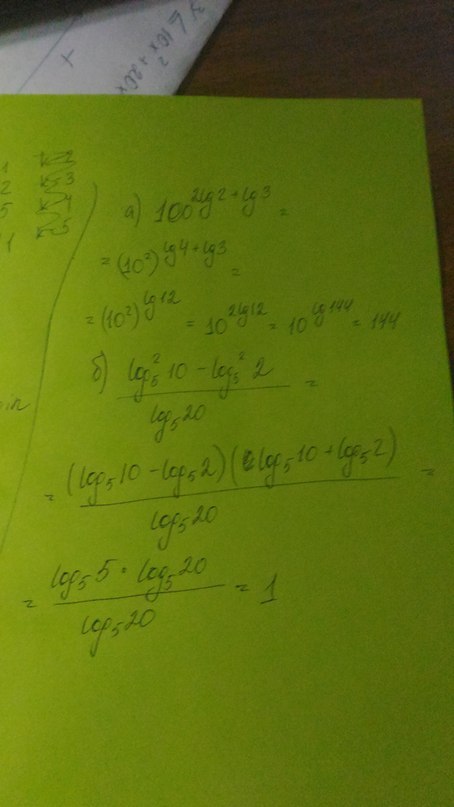 3 ∠ 10x² + 20x
1 2
2 3
5 4
1 5
а) 100^(2lg2+lg3) =
= (10²)^(lg4+lg3) =
= (10²)^(lg12) = 10^(2lg12) = 10^(lg144) = 144
б) (log₅²10 − log₅²2) / (log₅20) =
= ((log₅10 − log₅2)(log₅10 + log₅2)) / (log₅20) =
= (log₅5 · log₅20) / (log₅20) = 1